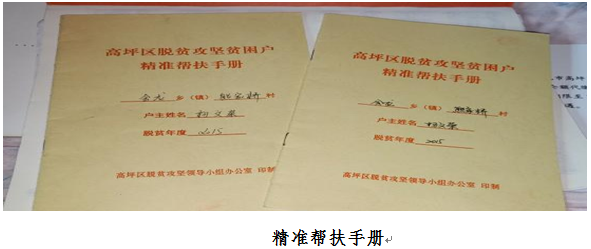 高坪区脱贫攻坚贫困户
精准帮扶手册
会龙 乡（镇） 熊家桥 村
户主姓名 杨文荣
脱贫年度 2015
高坪区脱贫攻坚领导小组办公室 印制
高坪区脱贫攻坚贫困户
精准帮扶手册
会龙 乡（镇） 熊家桥 村
户主姓名 杨文荣
脱贫年度 2015
高坪区脱贫攻坚领导小组办公室 印制
精准帮扶手册